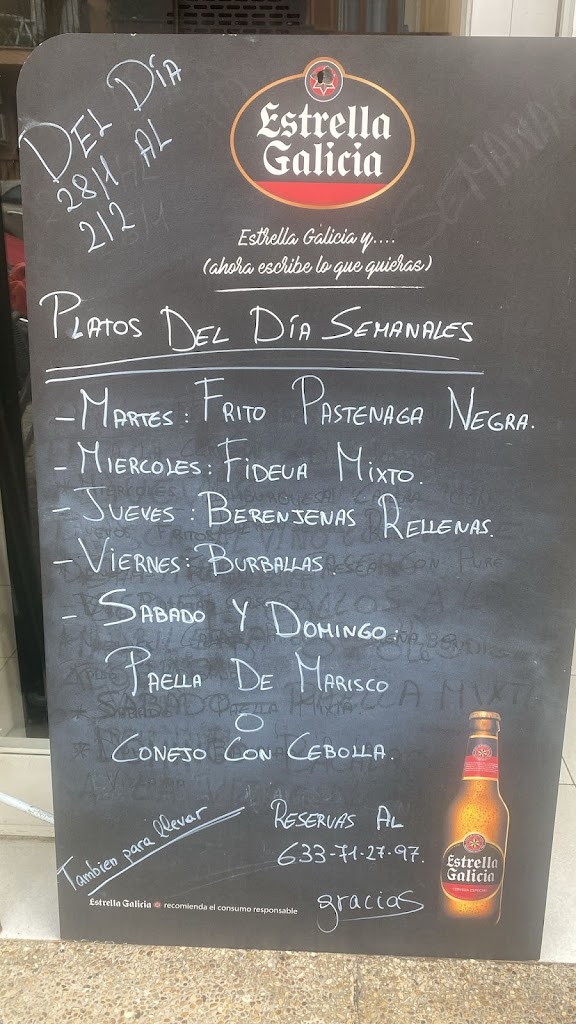 DEL DÍA
28/1 AL
2/2
Estrella
Galicia
Estrella Galicia y....
(ahora escribe lo que quieras)
PLATOS DEL DÍA SEMANALES
- MARTES: FRITO PASTENAGA NEGRA.
- MIERCOLES: FIDEUA MIXTO.
- JUEVES: BERENJENAS RELLENAS.
- VIERNES: BURBALLAS.
- SABADO Y DOMINGO:
PAELLA DE MARISCO
O
CONEJO CON CEBOLLA.
Tambien para llevar
RESERVAS AL
633-71-27-97.
gracias
Estrella
Galicia
CERVEZA ESPECIAL
Estrella Galicia recomienda el consumo responsable